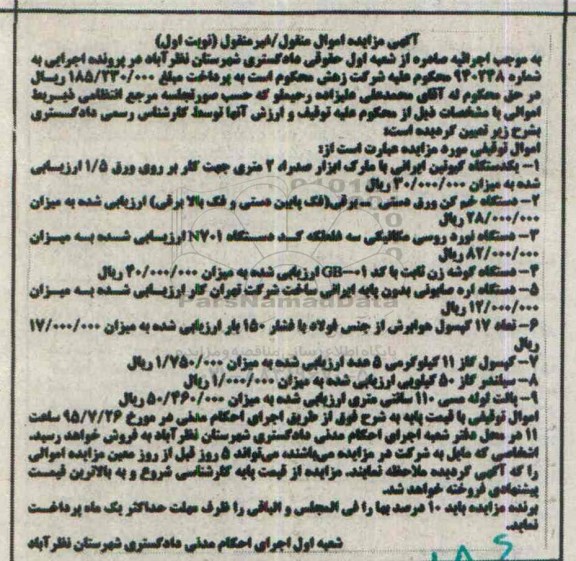 آگهی مزایده اموال منقول/غیرمنقول (نوبت اول)
به موجب اجرائیه صادره از شعبه اول حقوقی دادگستری شهرستان نظرآباد در پرونده اجرایی به
شماره ۹۴۰۲۴۸ محکوم علیه شرکت زهش محکوم است به پرداخت مبلغ ۱۸۵/۲۳۰/۰۰۰ ریال
در حق محکوم له آقای محمدعلی علیزاده رحیملو که حسب صورتجلسه مرجع انتظامی ذیربط
اموالی با مشخصات ذیل از محکوم علیه توقیف و ارزش آنها توسط کارشناس رسمی دادگستری
بشرح زیر تعیین گردیده است:
اموال توقیفی مورد مزایده عبارت است از:
۱- یکدستگاه گیوتین ایرانی با مارک ابزار صدرا، ۲ متری جهت کار بر روی ورق ۱/۵ ارزیابی
شده به میزان ۳۰/۰۰۰/۰۰۰ ریال
۲- دستگاه خم کن ورق دستی - برقی(فک پایین دستی و فک بالا برقی) ارزیابی شده به میزان
۲۸/۰۰۰/۰۰۰ ریال
۳- دستگاه نورد روسی مکانیکی سه غلطکه کد دستگاه N۷۰۱ ارزیابی شده به میزان
۸۲/۰۰۰/۰۰۰ ریال
۴- دستگاه گوشه زن ثابت با کد GB-۰۱ ارزیابی شده به میزان ۴۰/۰۰۰/۰۰۰ ریال
۵- دستگاه اره صابونی بدون پایه ایرانی ساخت شرکت تهران کار ارزیابی شده به میزان
۱۲/۰۰۰/۰۰۰ ریال
۶- تعداد ۱۷ کپسول هوابرش از جنس فولاد با فشار ۱۵۰ بار ارزیابی شده به میزان ۱۷/۰۰۰/۰۰۰
ریال
۷- کپسول گاز ۱۱ کیلوگرمی ۵ عدد ارزیابی شده به میزان ۱/۷۵۰/۰۰۰ ریال
۸- سیلندر گاز ۵۰ کیلویی ارزیابی شده به میزان ۱/۰۰۰/۰۰۰ ریال
۹- پالت لوله مسی ۱۱۰ سانتی متری ارزیابی شده به میزان ۵۰/۴۶۰/۰۰۰ ریال
اموال توقیفی با قیمت پایه به شرح فوق از طریق اجرای احکام مدنی در مورخ ۹۵/۷/۲۶ ساعت
۱۱ در محل دفتر شعبه اجرای احکام مدنی دادگستری شهرستان نظرآباد به فروش خواهد رسید.
اشخاصی که مایل به شرکت در مزایده می‌باشند می‌تواند ۵ روز قبل از روز معین مزایده اموالی
را که آگهی گردیده ملاحظه نمایند. مزایده از قیمت پایه کارشناسی شروع و به بالاترین قیمت
پیشنهادی فروخته خواهد شد.
برنده مزایده باید ۱۰ درصد بها را فی المجلس و الباقی را ظرف مهلت حداکثر یک ماه پرداخت
نماید.
شعبه اول اجرای احکام مدنی دادگستری شهرستان نظرآباد